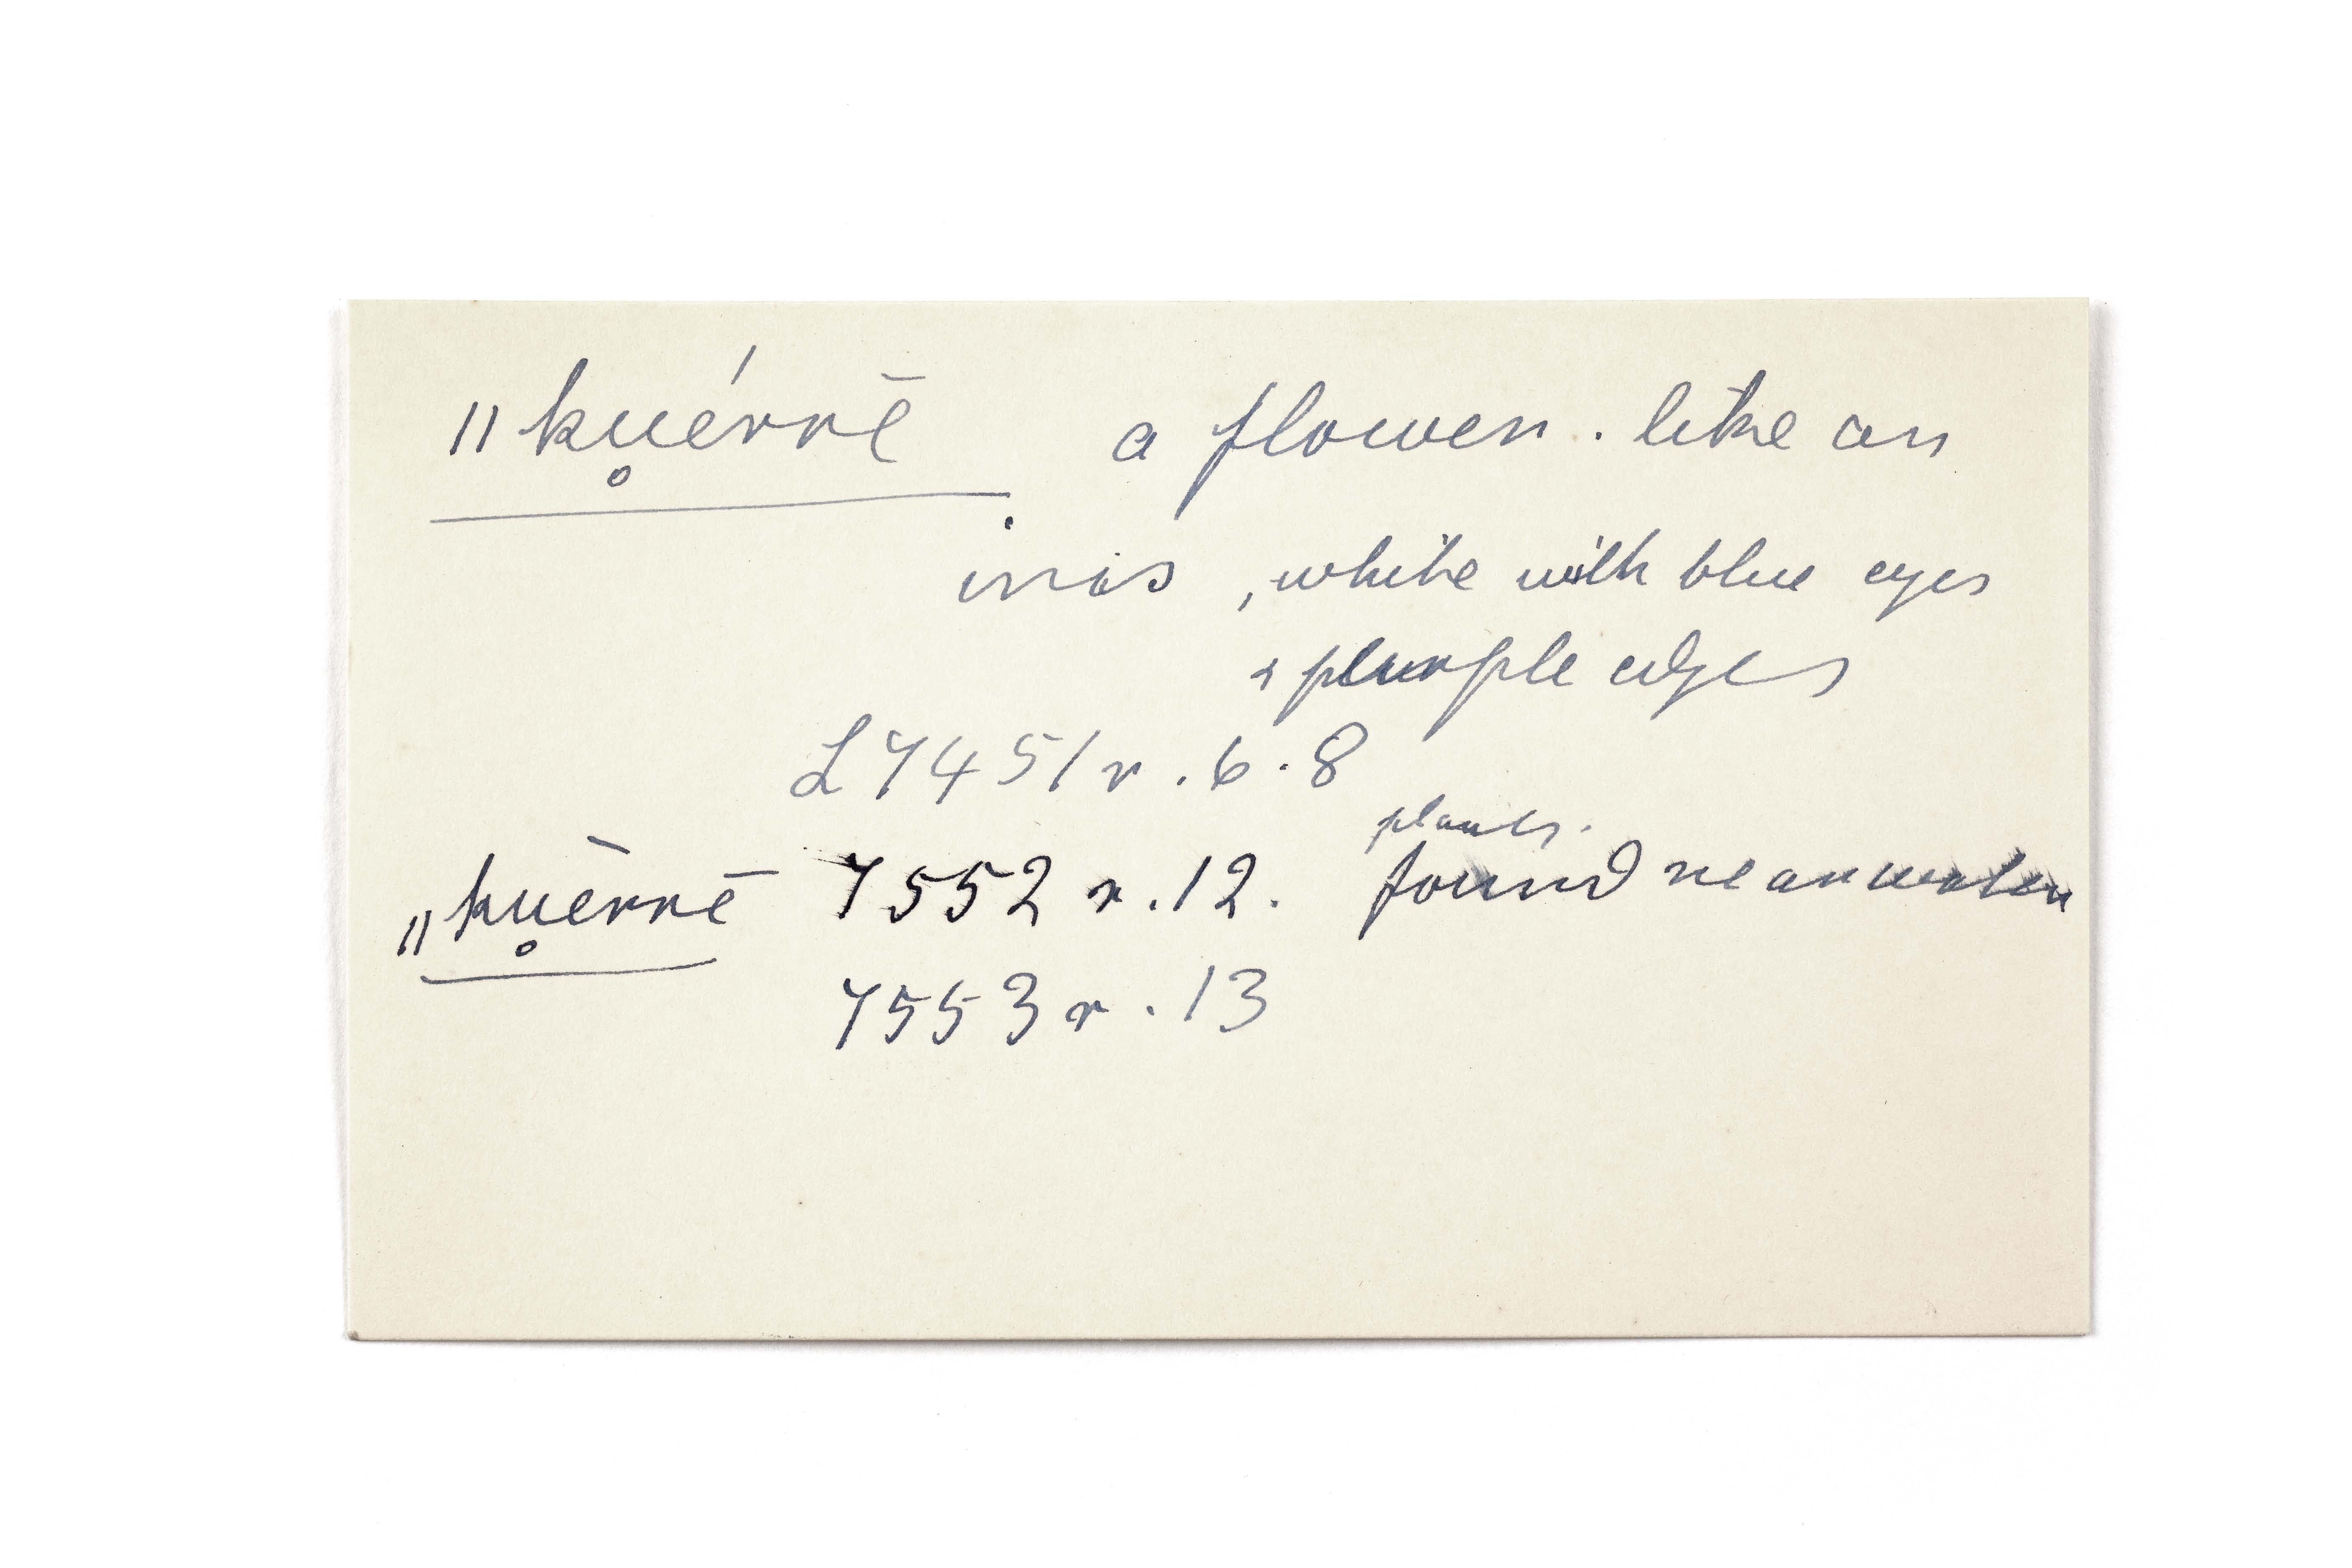 ‖ku̥érrē a flower. like an
iris, white with blue eyes
& plurple edges
L 7451 r. 6.8
plants.
‖ku̥ērrē 7552 r. 12. found near water
7553 r. 13